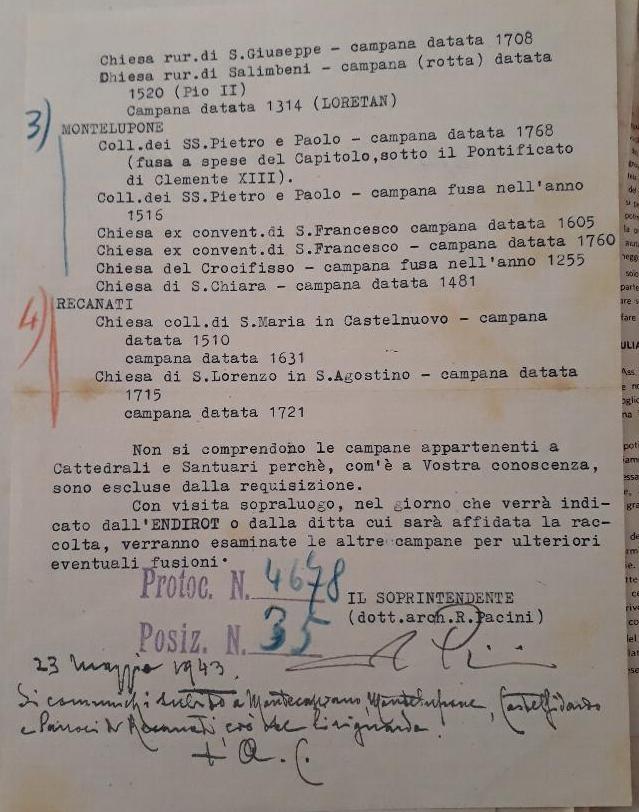 Chiesa rur.di S.Giuseppe - campana datata 1708
Dhiesa rur.di Salimbeni - campana (rotta) datata
1520 (Pio II)
Campana datata 1314 (LORETAN)
3)
MONTELUPONE
Coll.dei SS.Pietro e Paolo - campana datata 1768
(fusa a spese del Capitolo,sotto il Pontificato
di Clemente XIII).
Coll.dei SS.Pietro e Paolo - campana fusa nell'anno
1516
Chiesa ex convent.di S.Francesco campana datata 1605
Chiesa ex convent.di S.Francesco - campana datata 1760
Chiesa del Crocifisso - campana fusa nell'anno 1255
Chiesa di S.Chiara - campana datata 1481
4)
RECANATI
Chiesa coll.di S.Maria in Castelnuovo - campana
datata 1510
campana datata 1631
Chiesa di S.Lorenzo in S.Agostino - campana datata
1715
campana datata 1721
Non si comprendono le campane appartenenti a
Cattedrali e Santuari perchè, com'è a Vostra conoscenza,
sono escluse dalla requisizione.
Con visita sopraluogo, nel giorno che verrà indi-
cato dall'ENDIROT o dalla ditta cui sarà affidata la rac-
colta, verranno esaminate le altre campane per ulteriori
eventuali fusioni.
Protoc. N. 4678
IL SOPRINTENDENTE
(dott.arch.R.Pacini)
Posiz. N. 35
23 maggio 1943.
Si comunichi subito a Montecassiano, Montelupone, Castelfidardo
e Parroci di Recanati, ciò che li riguarda.